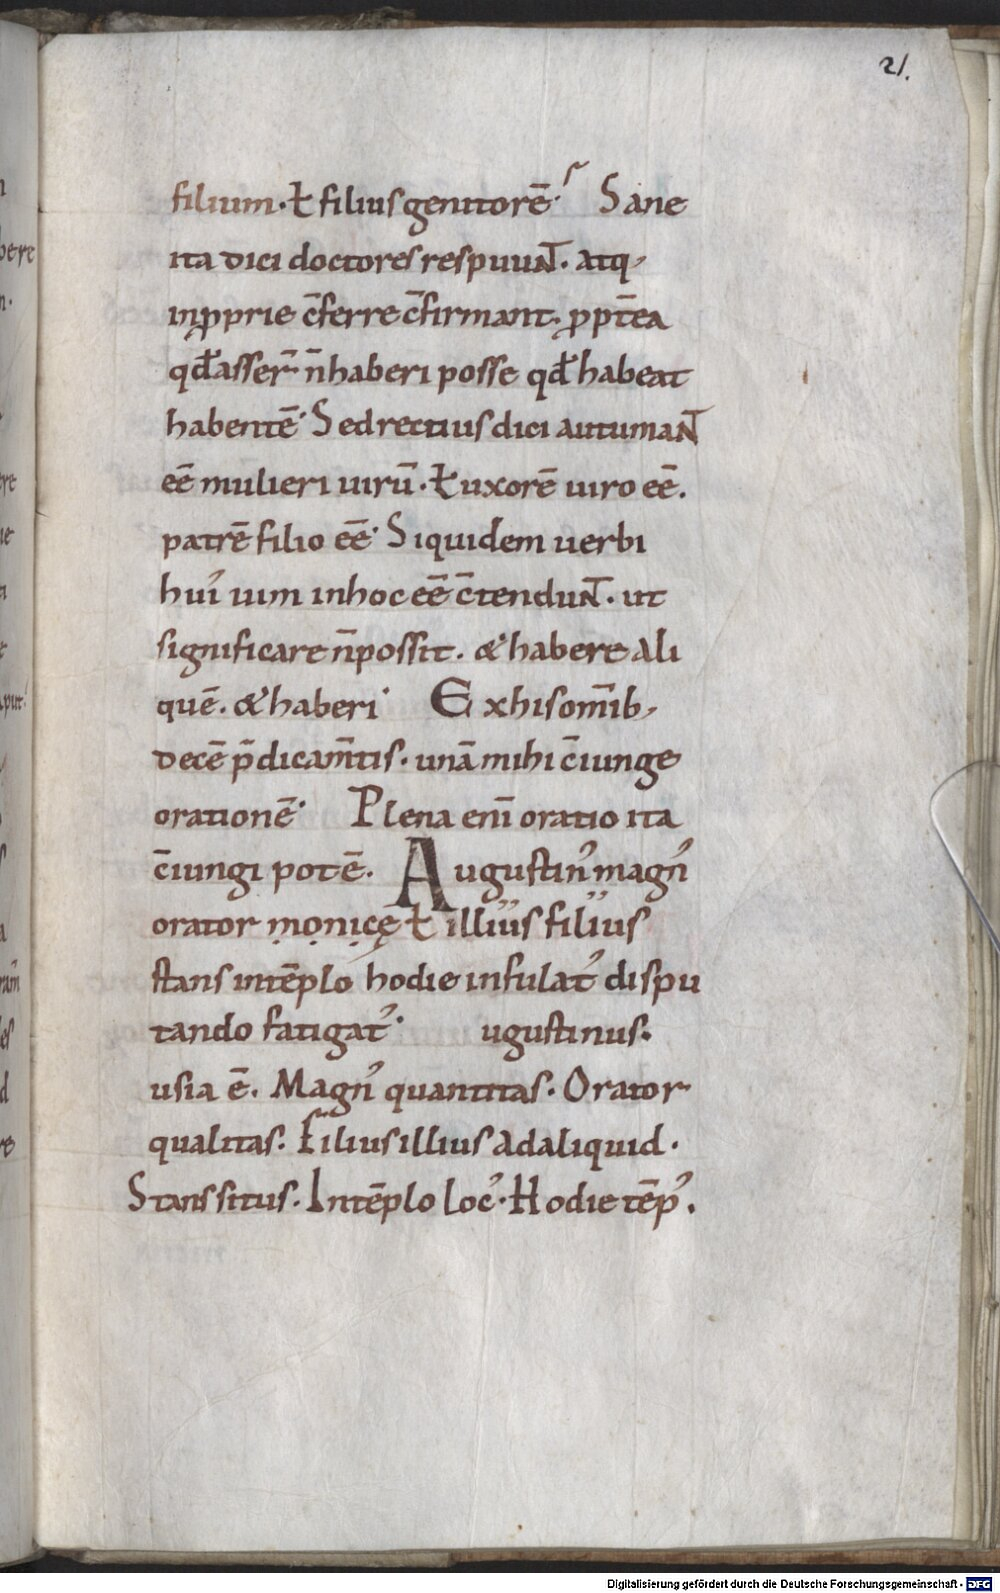 21.
filium· ł filius genitorē· Sane
ita dici doctores respuunt̄. atq;
inꝓprie c̄ferre c̄firmant. ꝓpt̄ea
qđ asser̄ n̄ haberi posse qđ habeat
habentē· Sed rectius dici autumant̄
eē mulieri uirū· ł uxorē uiro eē.
patrē filio eē· Siquidem uerbi
hui᾽ uim in hoc eē c̄tendunt̄· ut
significare n̄ possit. & habere ali
quē. & haberi· Ex his om̄ib;
decē p̄dicam̄tis· unā mihi c̄iunge
orationē· Plena eni̅ oratio ita
c̄iungi potē. Augustin᾽ magn᾽
orator monicę ł illius filius
stans intēplo hodie infulat᾽ dispu
tando fatigat᾽· ugustinus·
usia ē. Magn᾽ quantitas· Orator
qualitas· Filius illius ad aliquid·
Stans situs· Intēplo loc᾽· Hodie tēp᾽.
Digitalisierung gefördert durch die Deutsche Forschungsgemeinschaft - DFG